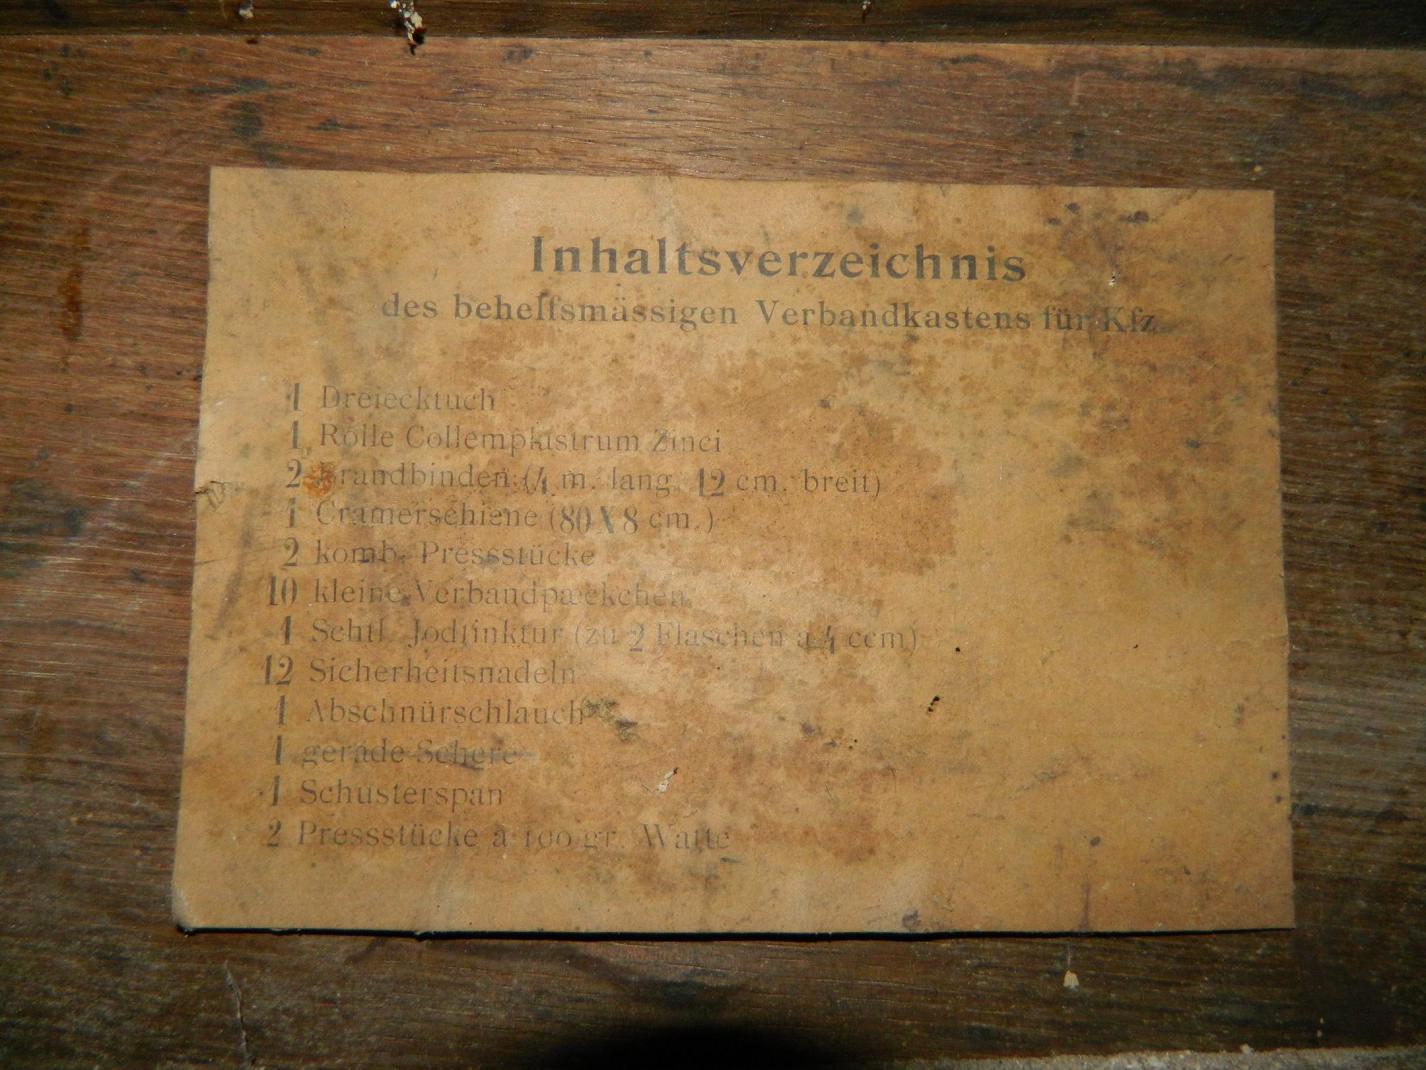 Inhaltsverzeichnis
des behelfsmässigen Verbandkastens für Kfz
1 Dreiecktuch
1 Rolle Collemplastrum Zinci
2 Brandbinden (4 m. lang, 12 cm. breit)
1 Cramerschiene (80X8 cm.)
2 komb. Pressstücke
10 kleine Verbandpaeckchen
1 Schtl. Jodtinktur (zu 2 Flaschen a 4 ccm)
12 Sicherheitsnadeln
1 Abschnürschlauch
1 gerade Schere
1 Schusterspan
2 Pressstücke a 100 gr. Watte